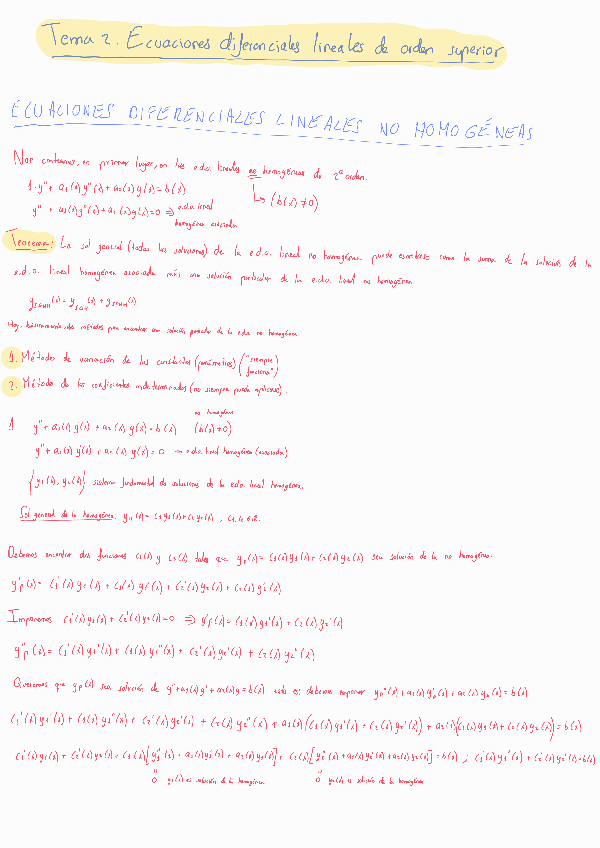 Tema 2. Ecuaciones diferenciales lineales de orden superior
ECUACIONES DIFERENCIALES LINEALES NO HOMOGÉNEAS
Nos centramos, en primer lugar, en las e.d.o. lineales no homogéneas de 2º orden.
1·y'' + a₁(x)y'(x) + a₂(x)y(x) = b(x) ↳ (b(x) ≠ 0)
y'' + a₁(x)y'(x) + a₂(x)y(x) = 0 ⇒ e.d.o. lineal
homogénea asociada
Teorema: La sol general (todas las soluciones) de la e.d.o. lineal no homogénea puede escribirse como la suma de la solución de la
e.d.o. lineal homogénea asociada más una solución particular de la e.d.o. lineal no homogénea
Hay, básicamente, dos métodos para encontrar una solución particular de la edo no homogénea.
1. Métodos de variación de las constantes (parámetros) ("siempre
funciona")
2. Método de los coeficientes indeterminados (no siempre puede aplicarse).
no homogénea
1 y'' + a₁(x)y'(x) + a₂(x)y(x) = b(x) (b(x) ≠ 0)
y'' + a₁(x)y'(x) + a₂(x)y(x) = 0 → e.d.o. lineal homogénea (asociada)
{y₁(x), y₂(x)} sistema fundamental de soluciones de la e.d.o. lineal homogénea.
Sol general de la homogénea: y_H(x) = c₁y₁(x) + c₂y₂(x), c₁, c₂ ∈ ℝ.
Debemos encontrar dos funciones c₁(x) y c₂(x) tales que y_p(x) = c₁(x)y₁(x) + c₂(x)y₂(x) sea solución de la no homogénea.
y'p(x) = c₁'(x)y₁(x) + c₁(x)y₁'(x) + c₂'(x)y₂(x) + c₂(x)y₂'(x)
Imponemos c₁'(x)y₁(x) + c₂'(x)y₂(x) = 0 ⇒ y'p(x) = c₁(x)y₁'(x) + c₂(x)y₂'(x)
y''p(x) = c₁'(x)y₁'(x) + c₁(x)y₁''(x) + c₂'(x)y₂'(x) + c₂(x)y₂''(x)
Queremos que yp(x) sea solución de y'' + a₁(x)y' + a₂(x)y = b(x) esto es: debemos imponer yp''(x) + a₁(x)yp'(x) + a₂(x)yp(x) = b(x)
c₁'(x)y₁'(x) + c₁(x)y₁''(x) + c₂'(x)y₂'(x) + c₂(x)y₂''(x) + a₁(x)(c₁(x)y₁'(x) + c₂(x)y₂'(x)) + a₂(x)(c₁(x)y₁(x) + c₂(x)y₂(x)) = b(x)
c₁'(x)y₁'(x) + c₂'(x)y₂'(x) + c₁(x)[y₁''(x) + a₁(x)y₁'(x) + a₂(x)y₁(x)] + c₂(x)[y₂''(x) + a₁(x)y₂'(x) + a₂(x)y₂(x)] = b(x) ; c₁'(x)y₁'(x) + c₂'(x)y₂'(x) = b(x)
0 y₁(x) es solución de la homogénea 0 y₂(x) es solución de la homogénea